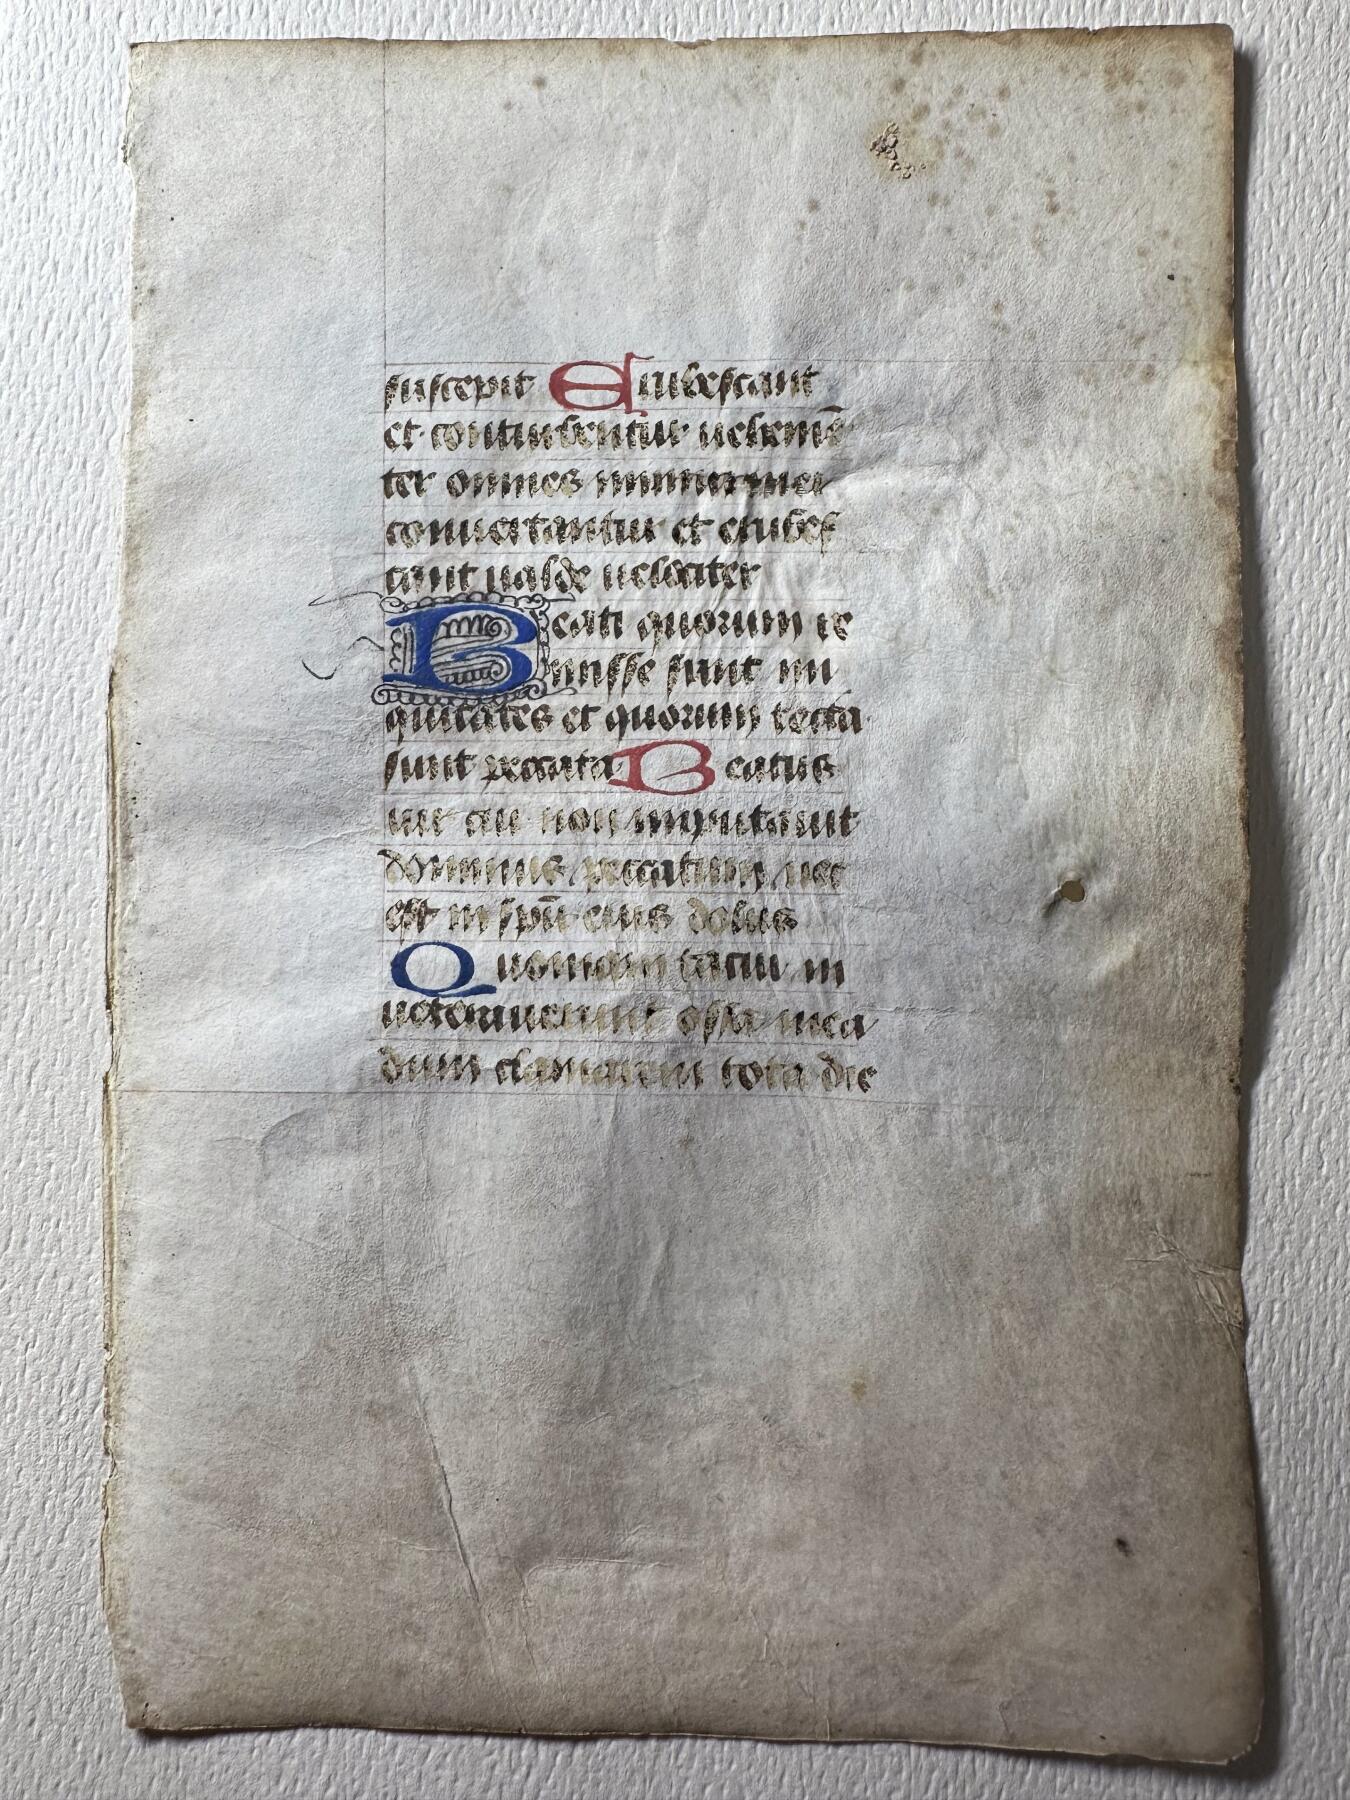 suscepit Erubescant
et conturbentur uehemē
ter omnes inimici mei
conuertantur et erubes
cant ualde uelociter
Beati quorum re
misse sunt ini
quitates et quorum tecta
sunt peccata Beatus
uir cui non imputauit
dominus peccatum nec
est in spū eius dolus
Quoniam tacui in
ueterauerunt ossa mea
dum clamarem tota die